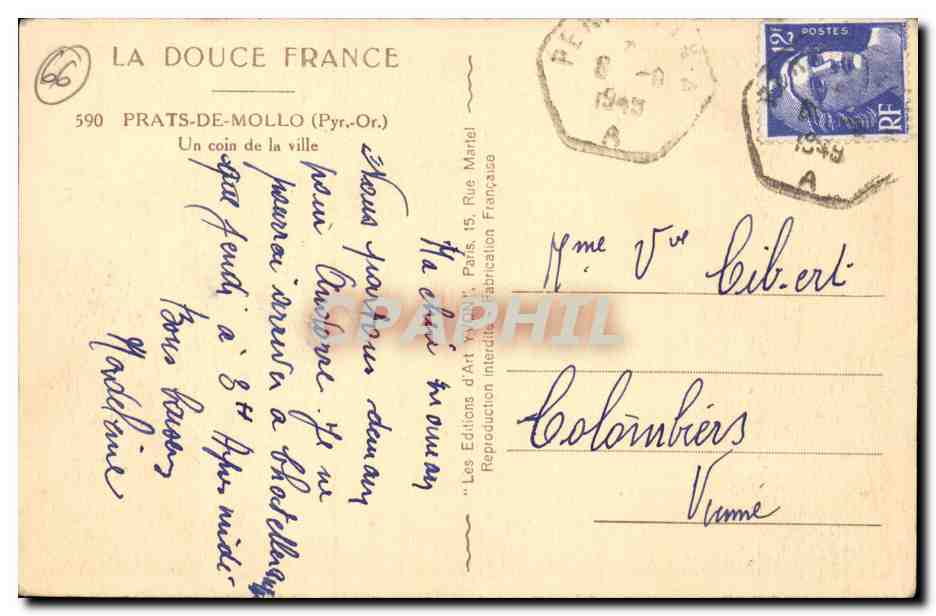 66
LA DOUCE FRANCE
590 PRATS-DE-MOLLO (Pyr.-Or.)
Un coin de la ville
Ma chère maman
Nous partons demain
pour Andorre. Je ne
pourrai arriver à Chatellerault
que jeudi à 8 H Après midi.
Bons baisers
Madeleine
"Les Editions d'Art YVON", Paris, 15, Rue Martel
Reproduction interdite Fabrication Française
1949
A
12F POSTES
RF
1949
A
Mme Vve Cibert
Colombiers
Vienne
CPAPHIL